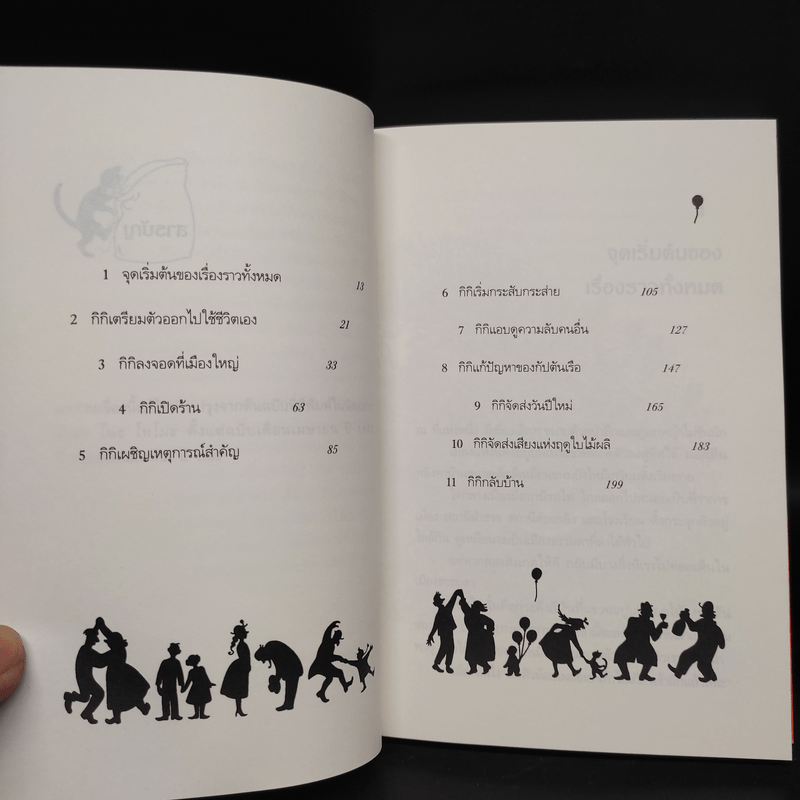 สารบัญ
1 จุดเริ่มต้นของเรื่องราวทั้งหมด 13
2 กิกิเตรียมตัวออกไปใช้ชีวิตเอง 21
3 กิกิลงจอดที่เมืองใหญ่ 33
4 กิกิเปิดร้าน 63
5 กิกิเผชิญเหตุการณ์สำคัญ 85
จุดเริ่มต้นของ
เรื่องราวทั้งหมด
6 กิกิเริ่มกระสับกระส่าย 105
7 กิกิแอบดูความลับคนอื่น 127
8 กิกิแก้ปัญหาของกัปตันเรือ 147
9 กิกิจัดส่งวันปีใหม่ 165
10 กิกิจัดส่งเสียงแห่งฤดูใบไม้ผลิ 183
11 กิกิกลับบ้าน 199